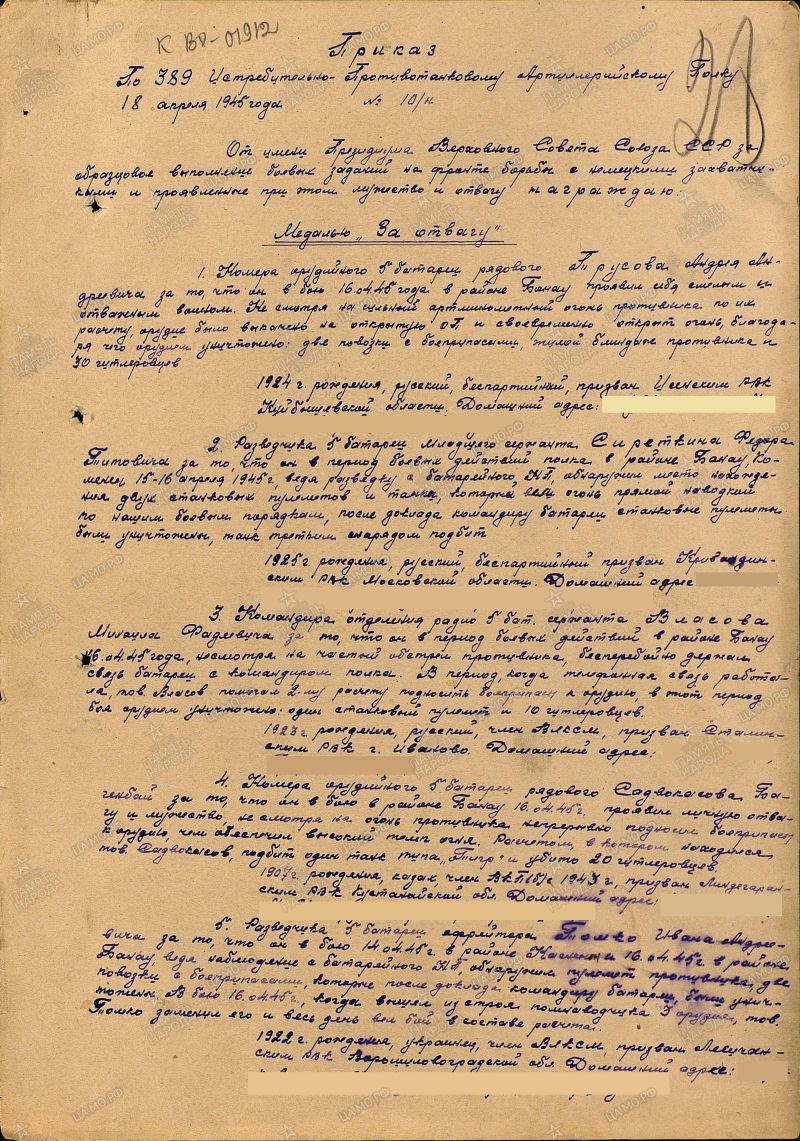 К ВР-01912
Приказ
По 389 Истребительно-Противотанковому Артиллерийскому Полку
18 апреля 1945 года № 10/н
От имени Президиума Верховного Совета Союза ССР за
образцовое выполнение боевых заданий на фронте борьбы с немецкими захватчи-
ками и проявленные при этом мужество и отвагу награждаю:
Медалью „За отвагу"
1. Номера орудийного 5 батареи рядового Трусова Андрея Ан-
дреевича за то, что он в бою 16.04.45 года в районе Банау проявил себя смелым и
отважным воином. Не смотря на сильный артминометный огонь противника по их
расчету, орудие было выкачено на открытую ОП и своевременно открыт огонь, благода-
ря чего орудием уничтожено: две повозки с боеприпасами, жилой блиндаж противника и
30 гитлеровцев
1924 г. рождения, русский, беспартийный, призван РВК
Куйбышевской области. Домашний адрес:
2. Разведчика 5 батареи младшего сержанта Сиреткина Федора
Титовича за то, что он в период боевых действий полка в районе Банау, Ко-
менен, 15-16 апреля 1945 г, ведя разведку с батарейного НП, обнаружил место нахожде-
ния двух станковых пулеметов и танка, которые вели огонь прямой наводкой
по нашим боевым порядкам, после доклада командиру батареи станковые пулеметы
были уничтожены, танк третьим снарядом подбит
1925 г рождения, русский, беспартийный призван Кривандин-
ским РВК Московской области. Домашний адрес
3. Командира отделения радио 5 бат. сержанта Власова
Михаила Фадеевича за то, что он в период боевых действий в районе Банау
16.04.45 года, несмотря на частый обстрел противника, бесперебойно держал
связь батареи с командиром полка. В период, когда телефонная связь работа-
ла, тов Власов помогал 2-му расчету подносить боеприпасы к орудию, в этот период
боя орудием уничтожено: один станковый пулемет и 10 гитлеровцев.
1923 г. рождения, русский, член ВЛКСМ, призван Сталин-
ским РВК г. Иваново. Домашний адрес:
4. Номера орудийного 5 батареи рядового Садвокасова
за то, что он в бою в районе Банау 16.04.45 г. проявил личную отва-
гу и мужество, не смотря на огонь противника непрерывно подносил боеприпасы
к орудию, чем обеспечил высокий темп огня. Расчетом, в котором находился
тов. Садвокасов, подбит один танк типа „Тигр" и убито 20 гитлеровцев.
1907 г. рождения, казах, член ВКП(б) с 1943 г, призван
ским РВК Кустанайской обл. Домашний адрес:
5. Разведчика 5 батареи ефрейтора Томко Ивана Андрее-
вича за то, что он в бою 14.04.45 г. в районе и 16.04.45 г. в районе
Банау ведя наблюдение с батарейного НП обнаружил пулемет противника, две
повозки с боеприпасами, которые после доклада командиру батареи, были унич-
тожены. В бою 16.04.45 г., когда вышел из строя помнаводчика 3 орудия, тов.
Томко заменил его и весь день вел бой в составе расчета.
1922 г. рождения, украинец, член ВЛКСМ, призван Лисичан-
ским РВК Ворошиловоградской обл. Домашний адрес: